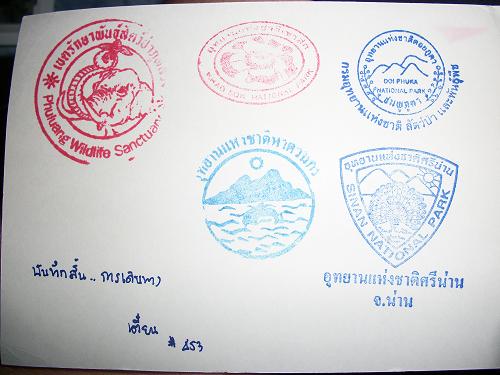 เขตรักษาพันธุ์สัตว์ป่าภูหลวง
Phuluang Wildlife Sanctuary
NATIONAL PARK
อุทยานแห่งชาติดอยภูคา
DOI PHUKA
NATIONAL PARK
กรมอุทยานแห่งชาติ สัตว์ป่า และพันธุ์พืช
อุทยานแห่งชาติหาดวนกร
อุทยานแห่งชาติศรีน่าน
SINAN NATIONAL PARK
อุทยานแห่งชาติศรีน่าน
จ.น่าน
บันทึกสั้น.. การเดินทาง
# 453